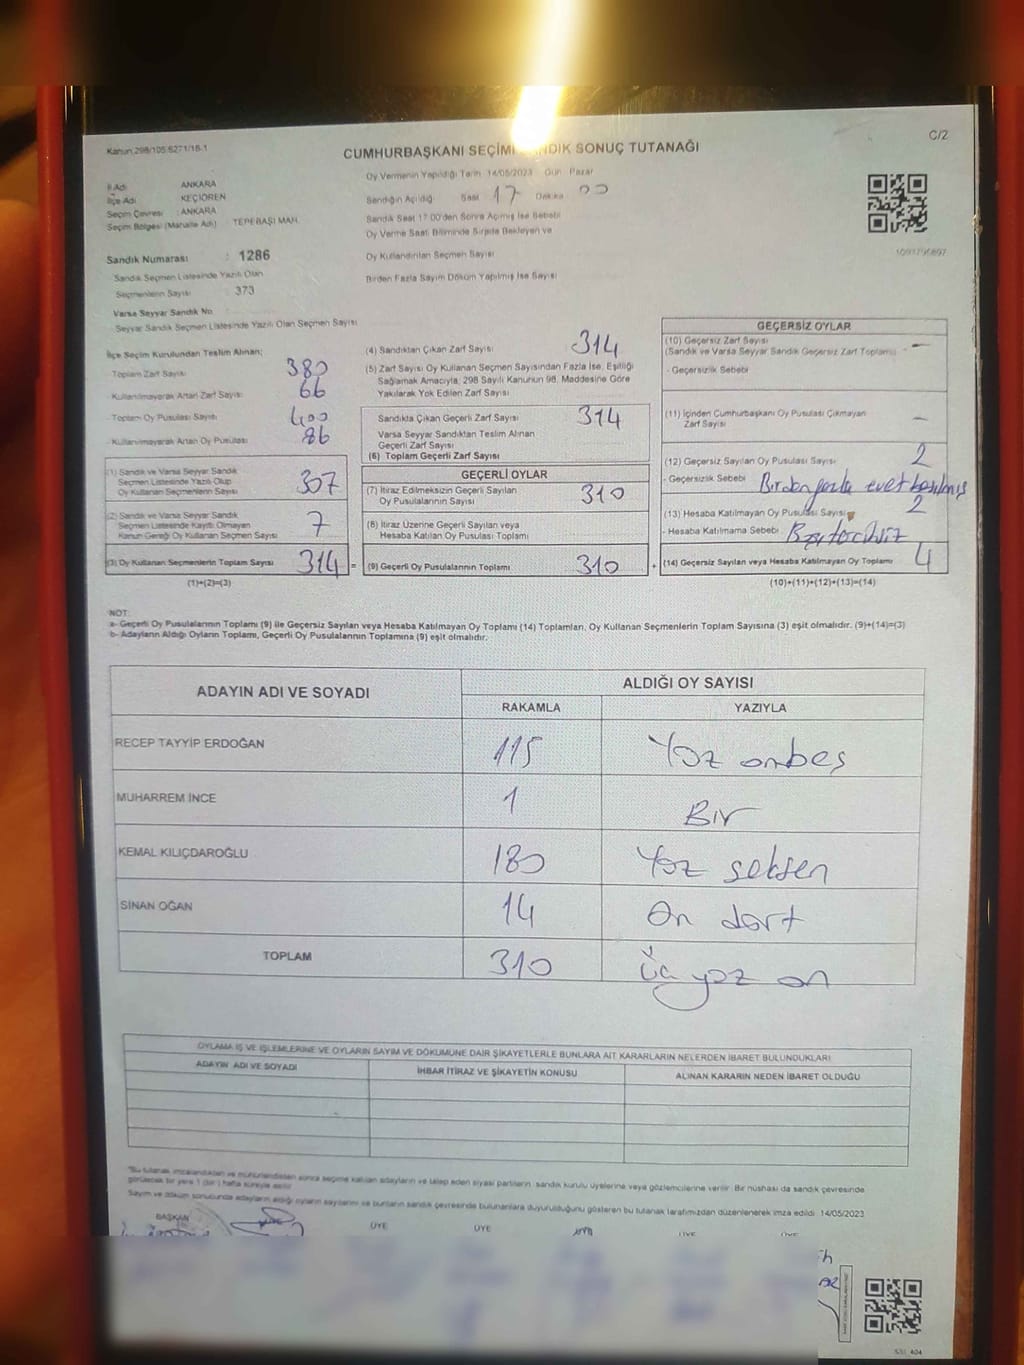 Kanun 298/105 6271/16-1
C/2
CUMHURBAŞKANI SEÇİMİ SANDIK SONUÇ TUTANAĞI
İl Adı ANKARA
İlçe Adı KEÇİÖREN
Seçim Çevresi : ANKARA
Seçim Bölgesi (Mahalle Adı) : TEPEBAŞI MAH.
Oy Vermenin Yapıldığı Tarih 14/05/2023 Gün Pazar
Sandığın Açıldığı Saat 17 Dakika 00
Sandık Saat 17:00'den Sonra Açılmış İse Sebebi
Oy Verme Saati Bitiminde Sırada Bekleyen ve
Oy Kullandırılan Seçmen Sayısı
Birden Fazla Sayım Döküm Yapılmış İse Sayısı
Sandık Numarası : 1286
Sandık Seçmen Listesinde Yazılı Olan
Seçmenlerin Sayısı : 373
Varsa Seyyar Sandık No
Seyyar Sandık Seçmen Listesinde Yazılı Olan Seçmen Sayısı
İlçe Seçim Kurulundan Teslim Alınan;
- Toplam Zarf Sayısı 380
- Kullanılmayarak Artan Zarf Sayısı 66
- Toplam Oy Pusulası Sayısı 400
- Kullanılmayarak Artan Oy Pusulası 86
(1) Sandık ve Varsa Seyyar Sandık
Seçmen Listesinde Yazılı Olup
Oy Kullanan Seçmenlerin Sayısı 307
(2) Sandık ve Varsa Seyyar Sandık
Seçmen Listesinde Kayıtlı Olmayan
Kanun Gereği Oy Kullanan Seçmen Sayısı 7
(3) Oy Kullanan Seçmenlerin Toplam Sayısı 314 =
(1)+(2)=(3)
(4) Sandıktan Çıkan Zarf Sayısı 314
(5) Zarf Sayısı Oy Kullanan Seçmen Sayısından Fazla İse, Eşitliği
Sağlamak Amacıyla; 298 Sayılı Kanunun 98. Maddesine Göre
Yakılarak Yok Edilen Zarf Sayısı
Sandıkta Çıkan Geçerli Zarf Sayısı 314
Varsa Seyyar Sandıktan Teslim Alınan
Geçerli Zarf Sayısı
(6) Toplam Geçerli Zarf Sayısı
GEÇERLİ OYLAR
(7) İtiraz Edilmeksizin Geçerli Sayılan
Oy Pusulalarının Sayısı 310
(8) İtiraz Üzerine Geçerli Sayılan veya
Hesaba Katılan Oy Pusulası Toplamı
(9) Geçerli Oy Pusulalarının Toplamı 310 +
GEÇERSİZ OYLAR
(10) Geçersiz Zarf Sayısı
(Sandık ve Varsa Seyyar Sandık Geçersiz Zarf Toplamı) —
- Geçersizlik Sebebi
(11) İçinden Cumhurbaşkanı Oy Pusulası Çıkmayan
Zarf Sayısı —
(12) Geçersiz Sayılan Oy Pusulası Sayısı 2
- Geçersizlik Sebebi Birden fazla evet basılmış
(13) Hesaba Katılmayan Oy Pusulası Sayısı 2
- Hesaba Katılmama Sebebi
(14) Geçersiz Sayılan veya Hesaba Katılmayan Oy Toplamı 4
(10)+(11)+(12)+(13)=(14)
NOT:
a- Geçerli Oy Pusulalarının Toplamı (9) ile Geçersiz Sayılan veya Hesaba Katılmayan Oy Toplamı (14) Toplamları, Oy Kullanan Seçmenlerin Toplam Sayısına (3) eşit olmalıdır. (9)+(14)=(3)
b- Adayların Aldığı Oyların Toplamı, Geçerli Oy Pusulalarının Toplamına (9) eşit olmalıdır.
ADAYIN ADI VE SOYADI
ALDIĞI OY SAYISI
RAKAMLA YAZIYLA
RECEP TAYYİP ERDOĞAN 115 Yüz onbeş
MUHARREM İNCE 1 Bir
KEMAL KILIÇDAROĞLU 180 Yüz seksen
SİNAN OĞAN 14 On dört
TOPLAM 310 Üç yüz on
OYLAMA İŞ VE İŞLEMLERİNE VE OYLARIN SAYIM VE DÖKÜMÜNE DAİR ŞİKAYETLERLE BUNLARA AİT KARARLARIN NELERDEN İBARET BULUNDUKLARI
ADAYIN ADI VE SOYADI İHBAR İTİRAZ VE ŞİKAYETİN KONUSU ALINAN KARARIN NEDEN İBARET OLDUĞU
"Bu tutanak imzalandıktan ve mühürlendikten sonra seçime katılan adayların ve talep eden siyasi partilerin sandık kurulu üyelerine veya gözlemcilerine verilir. Bir nüshası da sandık çevresinde
görülecek bir yere 1 (bir) hafta süreyle asılır.
Sayım ve döküm sonucunda adayların aldığı oyların sayılarını ve bunların sandık çevresinde bulunanlara duyurulduğunu gösteren bu tutanak tarafımızdan düzenlenerek imza edildi. 14/05/2023
BAŞKAN ÜYE ÜYE